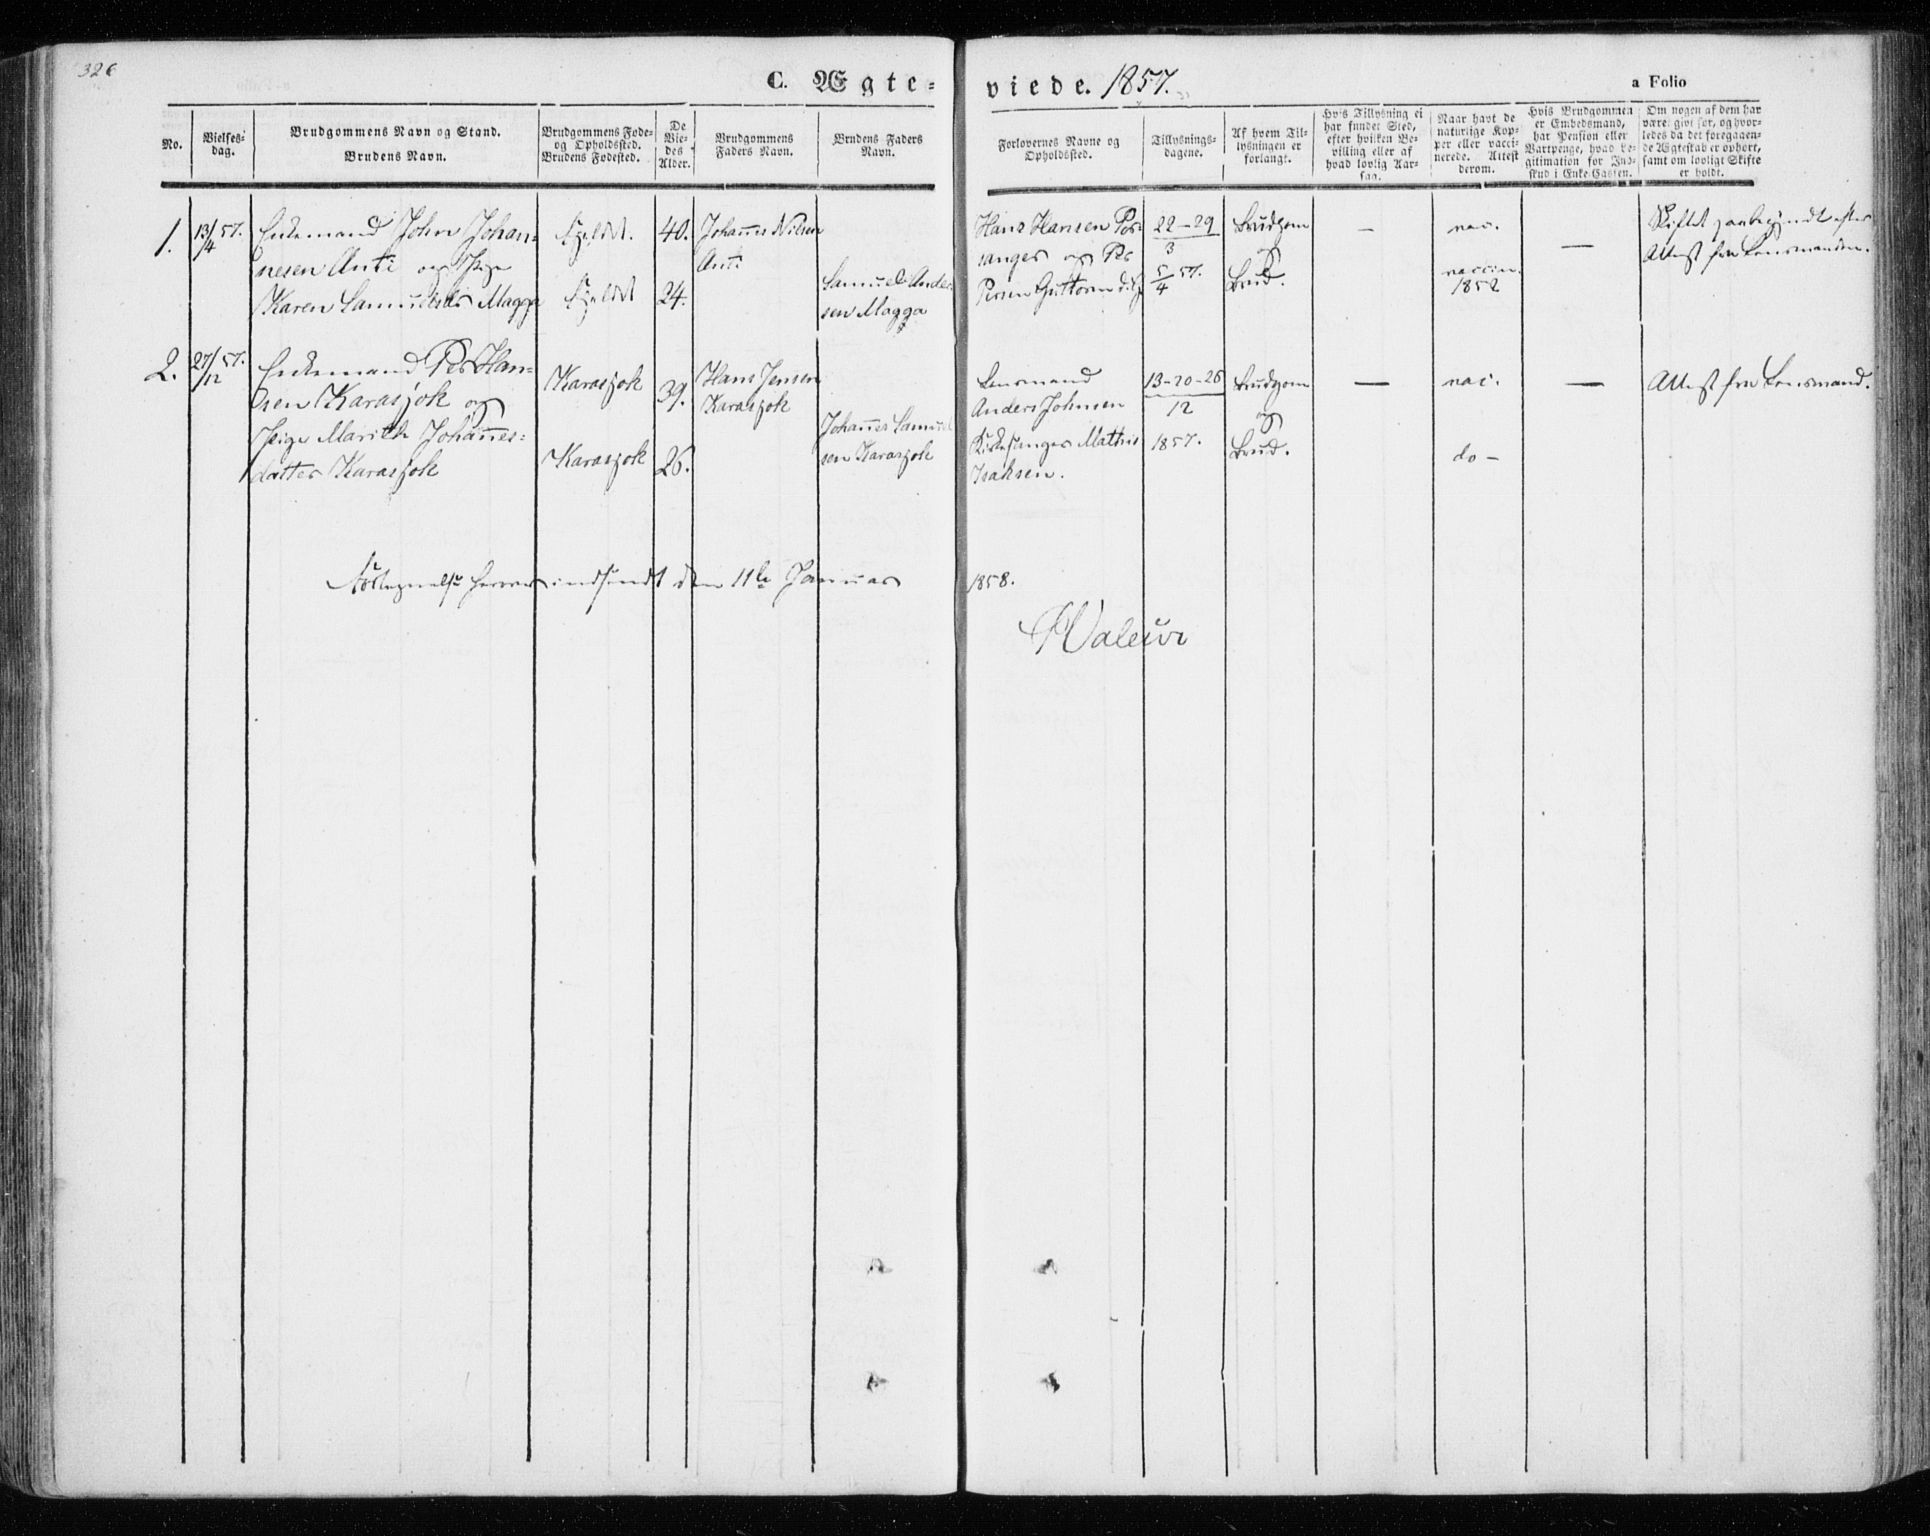 326
C. Ægte=
viede. 1857.
a Folio
No.
Vielses-
dag.
Brudgommens Navn og Stand.
Brudens Navn.
Brudgommens Føde-
og Opholdssted.
Brudens Fødested.
De
Vie-
des
Alder.
Brudgommens
Faders Navn.
Brudens Faders
Navn.
Forlovernes Navne og
Opholdssted.
Tillysnings-
dagene.
Af hvem Til-
lysningen er
forlangt.
Hvis Tillysning ei
har fundet Sted,
efter hvilken Be-
villing eller af
hvad lovlig Aar-
sag.
Naar havt de
naturlige Kop-
per eller vacci-
nerede. Attest
derom.
Hvis Brudgommen
er Embedsmand,
har Pension eller
Vartpenge, hvad Le-
gitimation for Ind-
skud i Enke-Cassen.
Om nogen af dem har
været gift før, og hvor-
ledes da det foregaaen-
de Ægteskab er ophørt,
samt om lovligt Skifte
er holdt.
1.
13/4 57.
Enkemand John Johan-
nesen Anti og Pige
Karen Samuelsds Magga
Fjeldet.
Fjeldet
40.
24.
Johannes Nilsen
Anti
Samuel Ander
sen Magga
Hans Hansen Por-
sanger og Per
Persen Guttorm
22-29
3
5
4 57.
Brudgom
og
Brud.
—
vac.
vaccin.
1852
—
Skiftet paabegyndt efter
Attest fra Lensmanden.
2.
27/12 57.
Enkemand Per Han-
sen Karasjok og
Pige Marith Johannes=
datter Karasjok
Karasjok
Karasjok
39.
26.
Hans Jensen
Karasjok
Johannes Samuel
sen Karasjok
Lensmand
Anders Johnsen
Kirkesanger Mathis
Isaksen.
13-20-26
12
1857.
Brudgom
og
Brud.
—
vac.
do —
—
Attest fra Lensmand.
Fortegnelse herover indsendt den 11te Januar 1858.